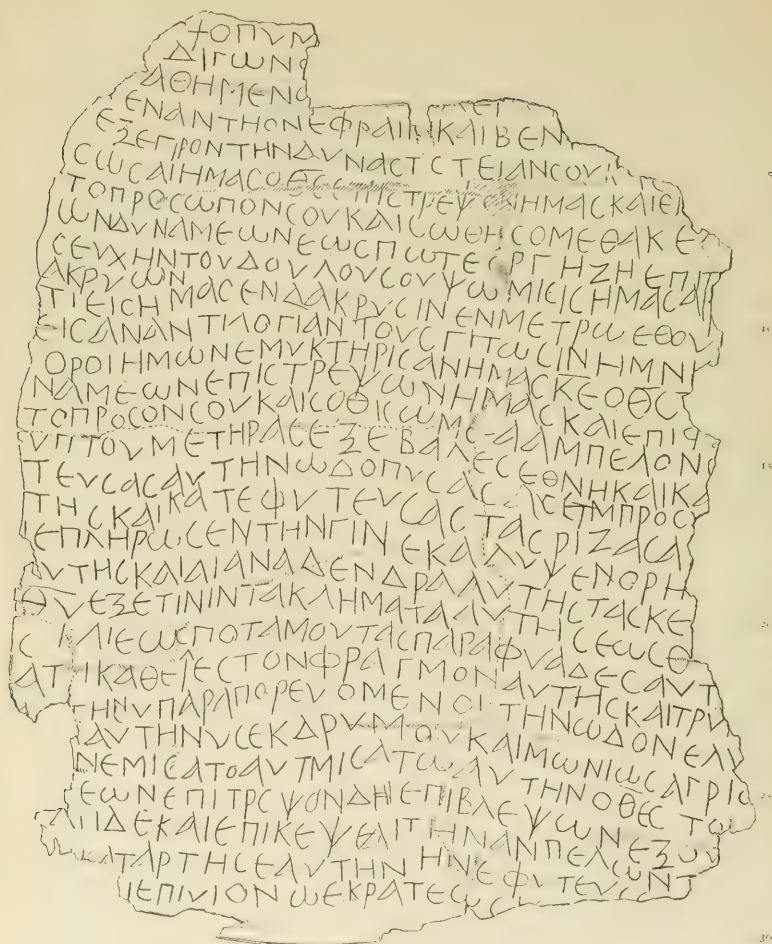 ϯΟΠΥΜ
ΔΙΓΩΝΟ
ΑΘΗΜΕΝΟ
ΛΕΙ
ΕΝΑΝΤΗΟΝΕΦΡΑΙΜΚΑΙΒΕΝ
ΕΞΕΓΙΡΟΝΤΗΝΔΥΝΑCΤCΤΕΙΑΝCΟΥΚ
CΩCΑΙΗΜΑCΟΘCΕΠΙCΤΡΕΨΟΝΗΜΑCΚΑΙΕΠ
ΤΟΠΡΟCΩΠΟΝCΟΥΚΑΙCΩΘΗCΟΜΕΘΑΚΕ
ΩΝΔΥΝΑΜΕΩΝΕΩCΠΩΤΕΟΡΓΗΖΗΕΠΙΤ
CΕΥΧΗΝΤΟΥΔΟΥΛΟΥCΟΥΨΩΜΙΕΙCΗΜΑCΑΡ
ΑΚΡΥΩΝ
ΤΙΕΙCΗΜΑCΕΝΔΑΚΡΥCΙΝΕΝΜΕΤΡΩΕΘΟΥ
ΕΙCΑΝΑΝΤΙΛΟΓΙΑΝΤΟΥCΓΙΤΩCΙΝΗΜΝΚ
ΟΡΟΙΗΜΩΝΕΜΥΚΤΗΡΙCΑΝΗΜΑCΚΕΟΘCΤ
ΝΑΜΕΩΝΕΠΙCΤΡΕΨΩΝΗΜΑCΚΑΙΕΠΙΦ
ΤΟΠΡΟCΟΝCΟΥΚΑΙCΟΘΙCΩΜΕΘΑΑΜΠΕΛΟΝ
ΥΠΤΟΥΜΕΤΗΡΑCΕΞΕΒΑΛΕCΕΘΝΗΚΑΙΚΑ
ΤΕΥCΑCΑΥΤΗΝΩΔΟΠΥCΑCΑCΕΤΜΠΡΟCΥ
ΤΗCΚΑΙΚΑΤΕΦΥΤΕΥCΑCΤΑCΡΙΖΑCΑ
ΙΕΠΛΗΡΩCΕΝΤΗΝΓΙΝΕΚΑΛΥΨΕΝΟΡΗ
ΑΥΤΗCΚΑΙΑΙΑΝΑΔΕΝΔΡΑΑΥΤΗCΤΑCΚΕ
ΘΥΕΞΕΤΙΝΙΝΤΑΚΛΗΜΑΤΑΑΥΤΗCΕΩCΘ
CΙΚΑΙΕΩCΠΟΤΑΜΟΥΤΑCΠΑΡΑΦΥΑΔΕCΑΥΤ
ΑΤΙΚΑΘΕΙΛΕCΤΟΝΦΡΑΓΜΟΝΑΥΤΗCΚΑΙΤΡΥ
ΤΗΝΥΠΑΡΑΠΟΡΕΥΟΜΕΝΟΙΤΗΝΩΔΟΝΕΛΥ
ΙΑΥΤΗΝΥCΕΚΔΡΥΜΟΥΚΑΙΜΩΝΙΩCΑΓΡΙΟ
ΝΕΜΙCΑΤΟΑΥΤΜΙCΑΤΩΑΥΤΗΝΟΘΕCΤΩ
ΕΩΝΕΠΙΤΡCΨΟΝΔΗΙΕΠΙΒΛΕΨΩΝΕΞΟΥ
ΑΙΙΔΕΚΑΙΕΠΙΚΕΨΕΑΙΤΗΝΑΝΠΕΛΩ
ΚΑΤΑΡΤΗCΕΑΥΤΗΝΗΝΕΦΥΤΕΥCΩΝΤ
ΙΕΠΙΥΙΟΝΩΕΚΡΑΤΕΩC